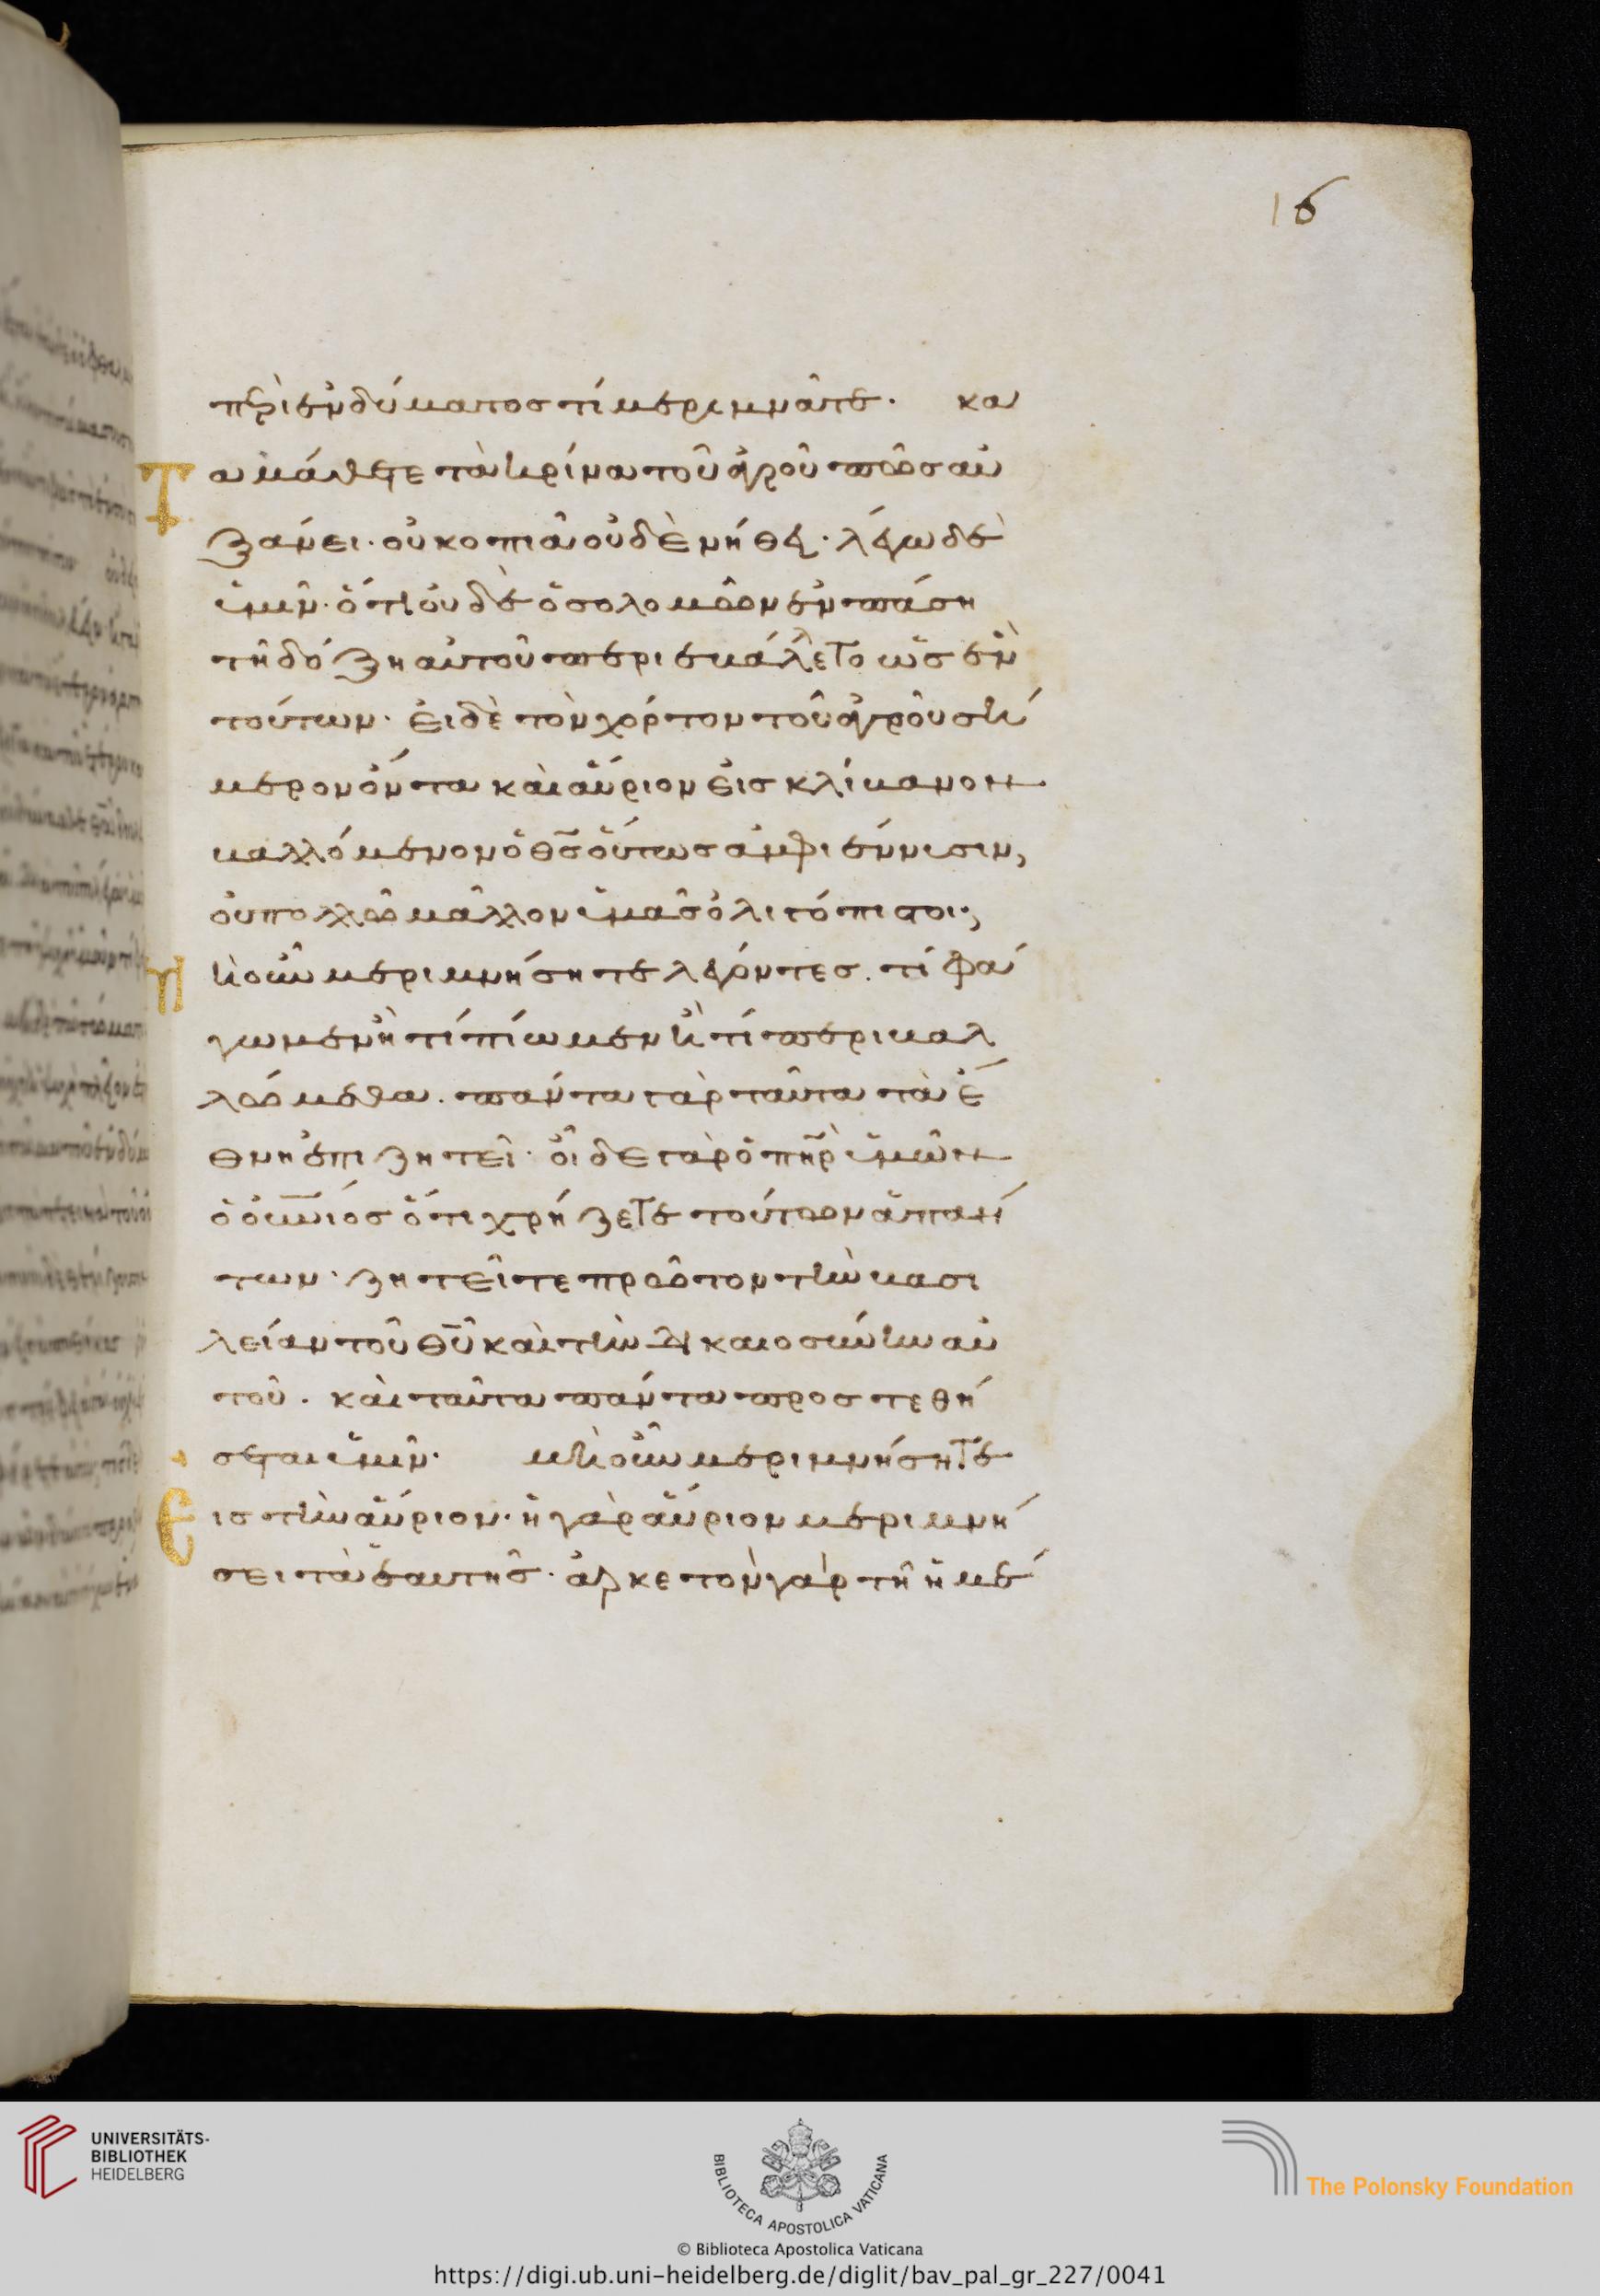 16
περὶ ἐνδύματος τί μεριμνᾶτε· κα
Ταμάθετε τὰ κρίνα τοῦ ἀγροῦ πῶς αὐ
ξάνει· οὐ κοπιᾶ οὐδὲ νήθει· λέγω δὲ
ὑμῖν· ὅτι οὐδὲ ὁ σολομῶν ἐν πάση
τῆ δόξη αὐτοῦ περιεβάλλετο ὡς ἓν
τούτων· εἰ δὲ τὸν χόρτον τοῦ ἀγροῦ σή
μερον ὄντα καὶ αὔριον εἰς κλίβανον
βαλλόμενον ὁ θς οὕτως ἀμφιέννισιν,
οὐ πολλῶ μᾶλλον ὑμᾶς ὀλιγόπιστοι;
Μὴ οὖν μεριμνήσητε λέγοντες. τί φά
γωμεν ἢ τί πίωμεν ἢ τί περιβαλ
λώμεθα. πάντα γὰρ ταῦτα τὰ ἔ
θνη ἐπιζητεῖ· οἶδε γὰρ ὁ πηρ ὑμῶν
ὁ οὐνιος ὅτι χρήζετε τούτων ἁπάν
των· ζητεῖτε πρῶτον τὴν βασι
λείαν τοῦ θυ καὶ τὴν δικαιοσύνην αὐ
τοῦ. καὶ ταῦτα πάντα προστεθή
σεται ὑμῖν· μὴ οὖν μεριμνήσητε
Εις τὴν αὔριον· ἡ γὰρ αὔριον μεριμνή
σει τὰ ἑαυτῆς· ἀρκετὸν γὰρ τῆ ἡμέ
UNIVERSITÄTS-
BIBLIOTHEK
HEIDELBERG
BIBLIOTECA APOSTOLICA VATICANA
The Polonsky Foundation
© Biblioteca Apostolica Vaticana
https://digi.ub.uni-heidelberg.de/diglit/bav_pal_gr_227/0041